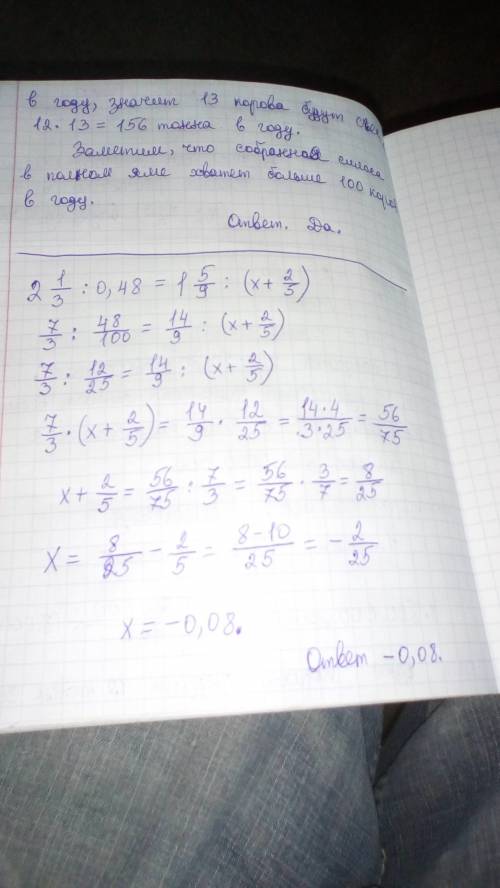 в году, значит 13 корова будут
12 · 13 = 156 тонна в году.
Заметим, что собранная силоса
в полном яме хватет больше 100
в году.
Ответ. Да.
2 1/3 : 0,48 = 1 5/9 : (x + 2/5)
7/3 : 48/100 = 14/9 : (x + 2/5)
7/3 : 12/25 = 14/9 : (x + 2/5)
7/3 · (x + 2/5) = 14/9 · 12/25 = 14·4/3·25 = 56/75
x + 2/5 = 56/75 : 7/3 = 56/75 · 3/7 = 8/25
x = 8/25 - 2/5 = 8-10/25 = - 2/25
x = -0,08.
Ответ -0,08.